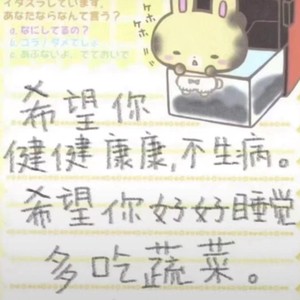 イタズラしています。
あなたならなんて言う?
a. なにしてるの?
b. コラ!ダメでしょ
c. あぶないよ、でておいで
ケホッ
ケホッ
希望你
健健康康,不生病。
希望你好好睡觉
多吃蔬菜。